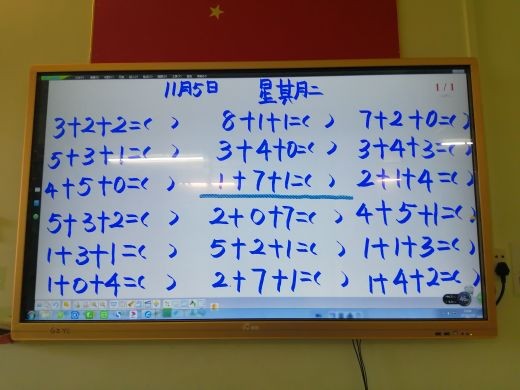 11月5日 星期二
1/1
3+2+2=( ) 8+1+1=( ) 7+2+0=( )
5+3+1=( ) 3+4+0=( ) 3+4+3=( )
4+5+0=( ) 1+7+1=( ) 2+1+4=( )
5+3+2=( ) 2+0+7=( ) 4+5+1=( )
1+3+1=( ) 5+2+1=( ) 1+1+3=( )
1+0+4=( ) 2+7+1=( ) 1+4+2=( )